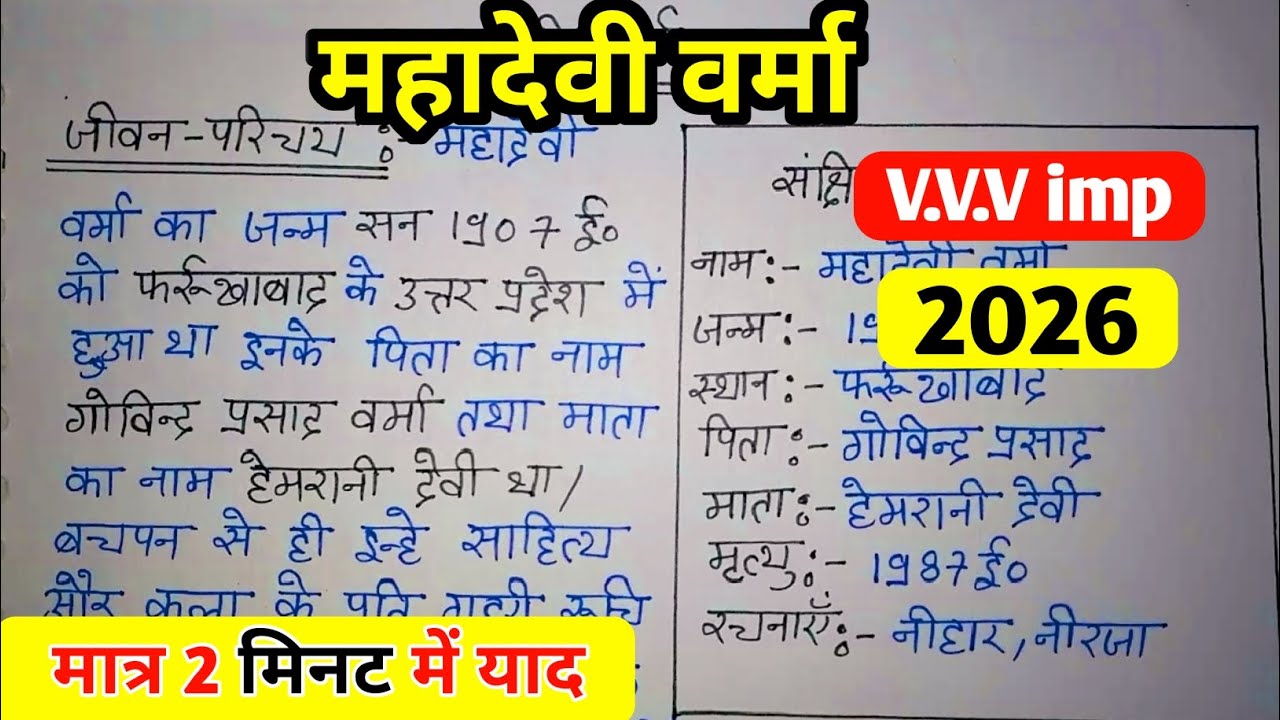 महादेवी वर्मा
जीवन-परिचय :- महादेवी
वर्मा का जन्म सन 1907 ई०
को फर्रूखाबाद के उत्तर प्रदेश में
हुआ था इनके पिता का नाम
गोविन्द प्रसाद वर्मा तथा माता
का नाम हेमरानी देवी था/
बचपन से ही इन्हे साहित्य
और कला के प्रति गहरी रूचि
मात्र 2 मिनट में याद
V.V.V imp
2026
नाम:- महादेवी वर्मा
जन्म:-
स्थान:- फर्रूखाबाद
पिता:- गोविन्द प्रसाद
माता:- हेमरानी देवी
मृत्यु:- 1987 ई०
रचनाएँ:- नीहार, नीरजा